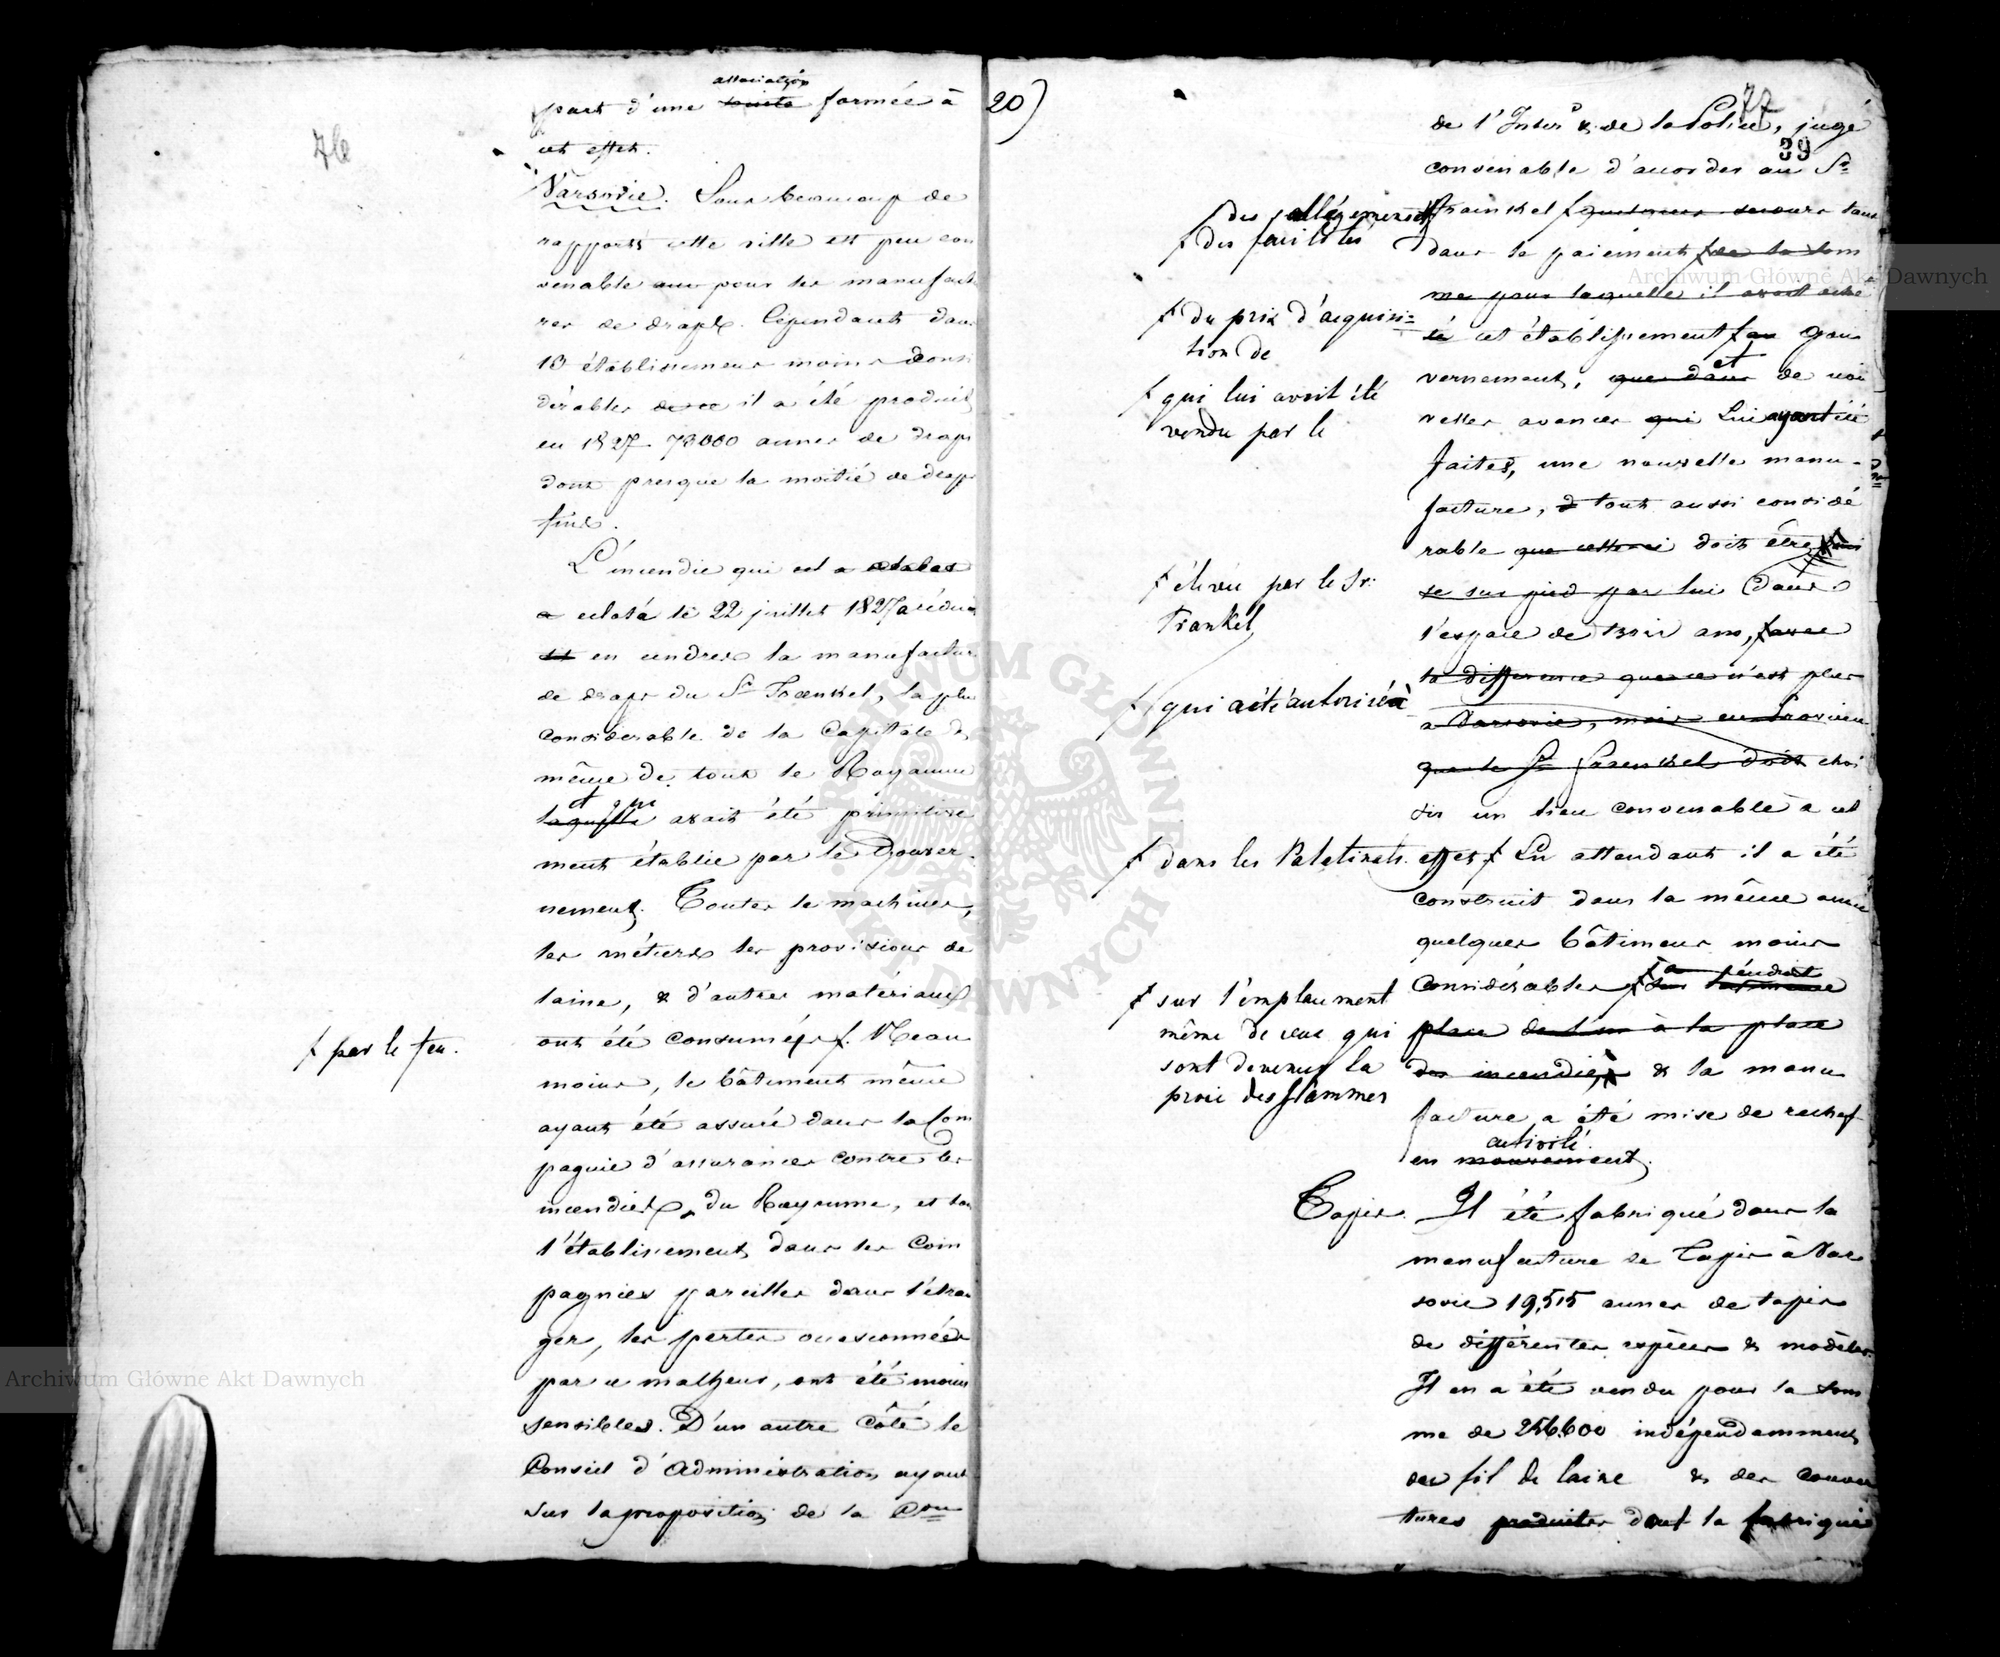 76
association
part d'une societé formée à
cet effet.
Varsovie. Sous beaucoup de
rapports cette ville est peu con
venable pour les manufactu
res de draps. Cépendant dans
13 établissemens moins consi
dérables de ce il a été produit
en 1827 73000 aunes de draps
dont presque la moitié de draps
fins.
L'incendie qui est
a eclaté le 22 juillet 1827 a rédui
sit en cendres la manufacture
de draps du Sr Fraenkel, la plus
considerable de la Capitale &
même de tout le Royaume
et qui
laquelle avait été primitive
ment établie par le Gouver-
nement. Toutes les machines,
les métiers les provisions de
laine, & d'autres matériaux
ont été consumés f. Nean
f par le feu.
moins, le bâtiment même
ayant été assuré dans la Com
pagnie d'assurances contre les
incendies du Royaume, et tout
l'établissement dans les Com
pagnies pareilles dans l'étran
ger, les pertes occasionnées
par ce malheur, ont été moins
sensibles. D'un autre Côté le
Conseil d'Administration ayant
sur la proposition de la Con
20)
77
39
de l'Inter & de la Police, jugé
convenable d'accorder au Sr
Fraenkel f quelques secours tant
f des allégemens
f des facilités
dans le paiement f de la som
me pour laquelle il avait ache
f du prix d'acquisi=
tion de
té cet établissement f au Gou
et
vernement, que dans de nou
f qui lui avoit été
vendu par le
velles avances qui Lui ayant été
faites, une nouvelle manu-
facture, & tout aussi considé
rable que celle-ci doit être mi
se sur pied par lui dans
f élévée par le Sr:
Frankel
l'espace de trois ans, f avec
la difference que ce n'est plus
f qui a été autorisé à
a Varsovie, mais en Province
que le Sr Fraenkel doit choi
sir un lieu convenable à cet
f dans les Palatinats.
effet f En attendant il a été
construit dans la même année
quelques bâtimens moins
considérables f
f sur l'emplacement
même de ceux qui
sont devenus la
proie des flammes
place de l'un à la place
des incendiés & la manu
facture a été mise de rechef
activité
en mouvement.
Tapis. Il été fabriqué dans la
manufacture de Tapis à Var
sovie 19,515 aunes de tapis
de différentes espèces & modèles.
Il en a été vendu pour la som
me de 256.600 indépendamment
du fil de laine & des couver
tures produites dont la fabrique
Archiwum Główne Akt Dawnych
Archiwum Główne Akt Dawnych
ARCHIWUM GŁÓWNE AKT DAWNYCH